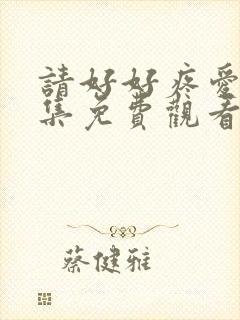 請好好疼愛
集免費觀看
蔡健雅